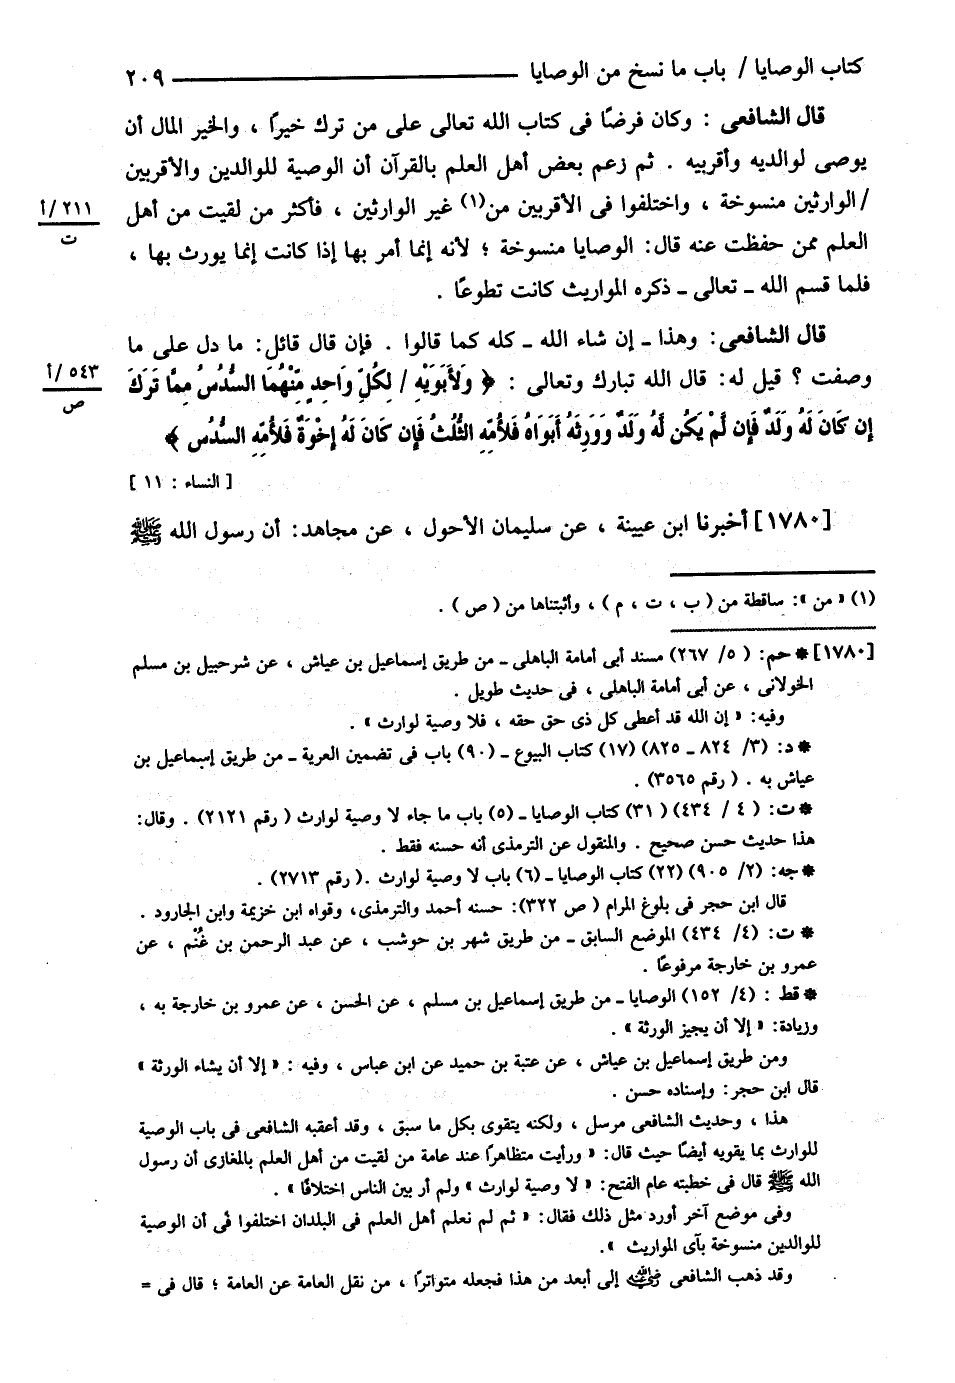 كتاب الوصايا / باب ما نسخ من الوصايا ــــــــــ ٢٠٩
قال الشافعى : وكان فرضًا فى كتاب الله تعالى على من ترك خيرًا ، والخير المال أن
يوصى لوالديه وأقربيه . ثم زعم بعض أهل العلم بالقرآن أن الوصية للوالدين والأقربين
/ الوارثين منسوخة ، واختلفوا فى الأقربين من(١) غير الوارثين ، فأكثر من لقيت من أهل
٢١١/ أ
ت
العلم ممن حفظت عنه قال: الوصايا منسوخة ؛ لأنه إنما أمر بها إذا كانت إنما يورث بها ،
فلما قسم الله ـ تعالى ـ ذكره المواريث كانت تطوعًا .
قال الشافعى: وهذا ـ إن شاء الله ـ كله كما قالوا . فإن قال قائل: ما دل على ما
وصفت ؟ قيل له: قال الله تبارك وتعالى : ﴿ وَلأَبَوَيْهِ / لِكُلِّ وَاحِدٍ مِّنْهُمَا السُّدُسُ مِمَّا تَرَكَ
٥٤٣/ أ
ص
إِن كَانَ لَهُ وَلَدٌ فَإِن لَّمْ يَكُن لَّهُ وَلَدٌ وَوَرِثَهُ أَبَوَاهُ فَلأُمِّهِ الثُّلُثُ فَإِن كَانَ لَهُ إِخْوَةٌ فَلأُمِّهِ السُّدُس ﴾
[ النساء : ١١ ]
[١٧٨٠] أخبرنا ابن عيينة ، عن سليمان الأحول ، عن مجاهد: أن رسول الله ﷺ
(١) « من »: ساقطة من ( ب ، ت ، م ) ، وأثبتناها من ( ص ) .
[١٧٨٠] * حم: ( ٥/ ٢٦٧) مسند أبى أمامة الباهلى ـ من طريق إسماعيل بن عياش ، عن شرحبيل بن مسلم
الخولانى ، عن أبى أمامة الباهلى ، فى حديث طويل .
وفيه: « إن الله قد أعطى كل ذى حق حقه ، فلا وصية لوارث » .
* د: (٣/ ٨٢٤ ـ ٨٢٥) (١٧) كتاب البيوع ـ (٩٠) باب فى تضمين العرية ـ من طريق إسماعيل بن
عياش به . ( رقم ٣٥٦٥) .
* ت: ( ٤ / ٤٣٤) ( ٣١) كتاب الوصايا ـ (٥) باب ما جاء لا وصية لوارث ( رقم ٢١٢١) . وقال:
هذا حديث حسن صحيح . والمنقول عن الترمذى أنه حسنه فقط .
* جه: (٢/ ٩٠٥) (٢٢) كتاب الوصايا ـ (٦) باب لا وصية لوارث .( رقم ٢٧١٣) .
قال ابن حجر فى بلوغ المرام ( ص ٣٢٢): حسنه أحمد والترمذى، وقواه ابن خزيمة وابن الجارود .
* ت: (٤/ ٤٣٤) الموضع السابق ـ من طريق شهر بن حوشب ، عن عبد الرحمن بن غُنْم ، عن
عمرو بن خارجة مرفوعًا .
* قط : (٤/ ١٥٢) الوصايا ـ من طريق إسماعيل بن مسلم ، عن الحسن ، عن عمرو بن خارجة به ،
وزيادة: « إلا أن يجيز الورثة » .
ومن طريق إسماعيل بن عياش ، عن عتبة بن حميد عن ابن عباس ، وفيه : « إلا أن يشاء الورثة »
قال ابن حجر: وإسناده حسن .
هذا ، وحديث الشافعى مرسل ، ولكنه يتقوى بكل ما سبق ، وقد أعقبه الشافعى فى باب الوصية
للوارث بما يقويه أيضًا حيث قال: « ورأيت متظاهرًا عند عامة من لقيت من أهل العلم بالمغازى أن رسول
الله ﷺ قال فى خطبته عام الفتح: « لا وصية لوارث » ولم أر بين الناس اختلافًا » .
وفى موضع آخر أورد مثل ذلك فقال: « ثم لم نعلم أهل العلم فى البلدان اختلفوا فى أن الوصية
للوالدين منسوخة بآى المواريث ».
وقد ذهب الشافعى رضي الله عنه إلى أبعد من هذا فجعله متواترًا ، من نقل العامة عن العامة ؛ قال فى =